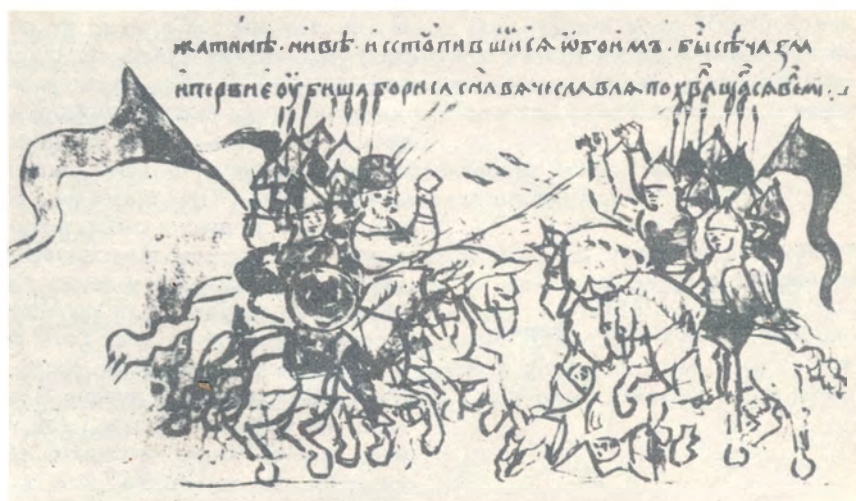 жатинѣ · нивѣ · и сстѹпивши́сѧ ѡ҆боимъ · бы́ сѣча ѕла
и первие ѹбиша бориса сн҃а вѧчеславлѧ похвалѧщасѧ вельми ·